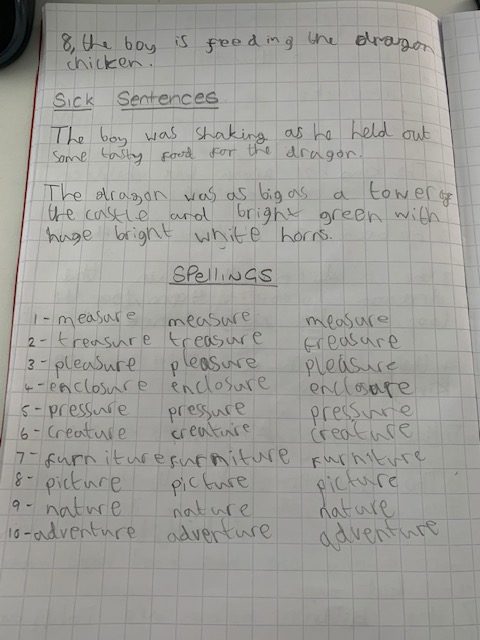 8, the boy is feeding the dragon
chicken.
Sick Sentences
The boy was shaking as he held out
some tasty food for the dragon.
The dragon was as big as a tower of
the castle and bright green with
huge bright white horns.
SPELLINGS
1 - measure measure measure
2 - treasure treasure treasure
3 - pleasure pleasure pleasure
4 - enclosure enclosure enclosure
5 - pressure pressure pressure
6 - creature creature creature
7 - furniture furniture furniture
8 - picture picture picture
9 - nature nature nature
10 - adventure adventure adventure